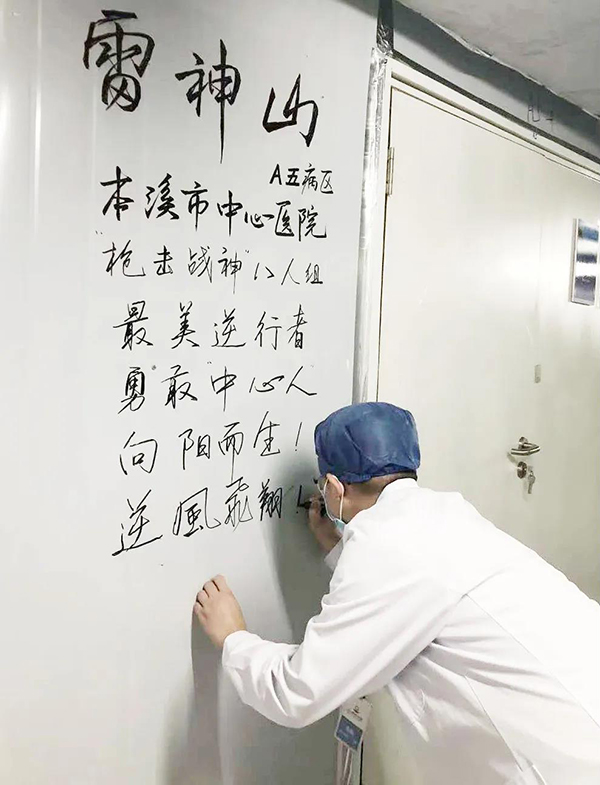 雷神山
A五病区
本溪市中心医院
"枪击战神"12人组
最美逆行者
勇敢"中心人"
向阳而生！
逆風飛翔！